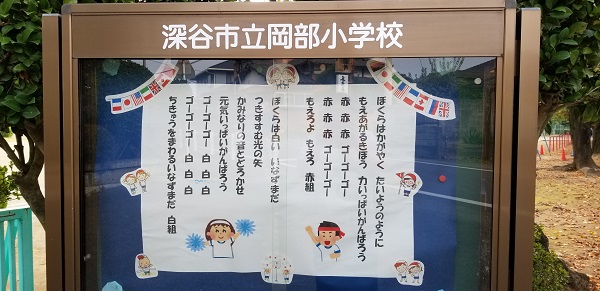 深谷市立岡部小学校
ぼくらはかがやく たいようのように
もえあがるきぼう 力いっぱいがんばろう
赤 赤 赤 ゴーゴーゴー
赤 赤 赤 ゴーゴーゴー
もえろよ もえろ 赤組
ぼくらは白い いなずまだ
つきすすむ光の矢
かみなりの音とどろかせ
元気いっぱいがんばろう
ゴーゴーゴー 白 白 白
ゴーゴーゴー 白 白 白
ちきゅうをまわるいなずまだ 白組